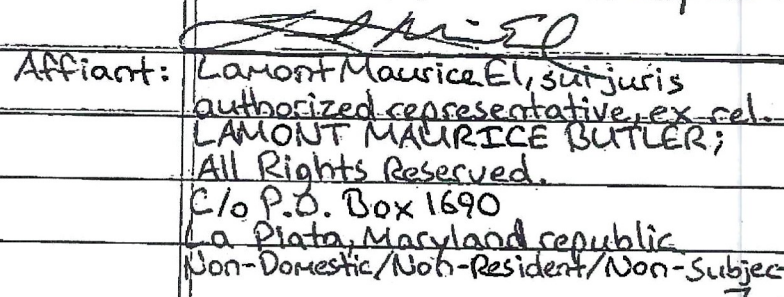 Affiant: Lamont Maurice El, sui juris
authorized representative, ex rel.
LAMONT MAURICE BUTLER;
All Rights Reserved.
C/o P.O. Box 1690
La Plata, Maryland republic
Non-Domestic/Non-Resident/Non-Subjec